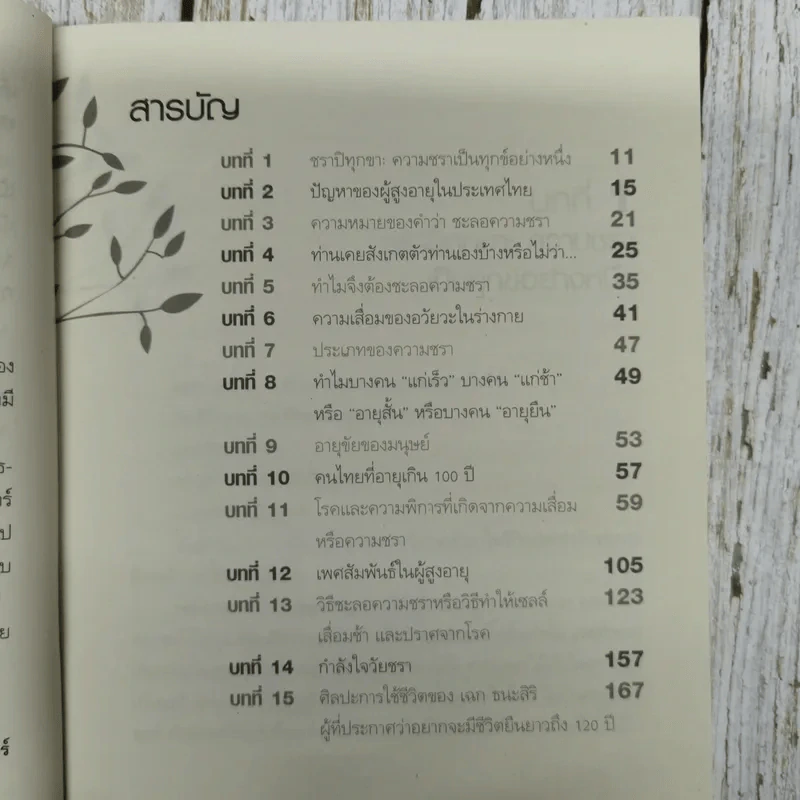 สารบัญ
บทที่ 1 ชราปิทุกขา: ความชราเป็นทุกข์อย่างหนึ่ง 11
บทที่ 2 ปัญหาของผู้สูงอายุในประเทศไทย 15
บทที่ 3 ความหมายของคำว่า ชะลอความชรา 21
บทที่ 4 ท่านเคยสังเกตตัวท่านเองบ้างหรือไม่ว่า... 25
บทที่ 5 ทำไมจึงต้องชะลอความชรา 35
บทที่ 6 ความเสื่อมของอวัยวะในร่างกาย 41
บทที่ 7 ประเภทของความชรา 47
บทที่ 8 ทำไมบางคน "แก่เร็ว" บางคน "แก่ช้า" 49
หรือ "อายุสั้น" หรือบางคน "อายุยืน"
บทที่ 9 อายุขัยของมนุษย์ 53
บทที่ 10 คนไทยที่อายุเกิน 100 ปี 57
บทที่ 11 โรคและความพิการที่เกิดจากความเสื่อม 59
หรือความชรา
บทที่ 12 เพศสัมพันธ์ในผู้สูงอายุ 105
บทที่ 13 วิธีชะลอความชราหรือวิธีทำให้เซลล์ 123
เสื่อมช้า และปราศจากโรค
บทที่ 14 กำลังใจวัยชรา 157
บทที่ 15 ศิลปะการใช้ชีวิตของ เฉก ธนะสิริ 167
ผู้ที่ประกาศว่าอยากจะมีชีวิตยืนยาวถึง 120 ปี